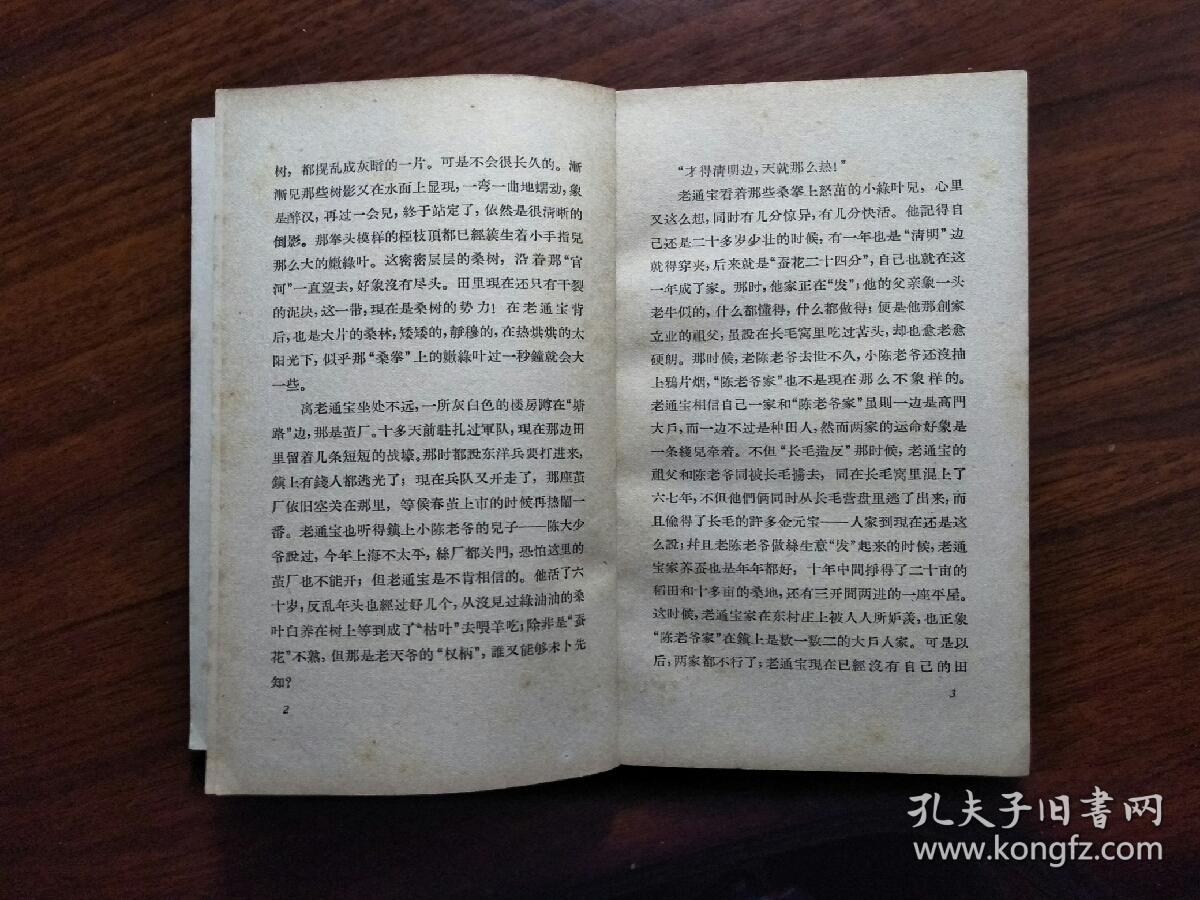 树，都搅乱成灰暗的一片。可是不会很长久的。漸
漸見那些树影又在水面上显現，一弯一曲地蠕动，象
是醉汉，再过一会兒，終于站定了，依然是很清晰的
倒影。那拳头模样的椏枝頂都已經簇生着小手指兒
那么大的嫩綠叶。这密密层层的桑树，沿着那“官
河”一直望去，好象沒有尽头。田里現在还只有干裂
的泥块，这一带，現在是桑树的势力！在老通宝背
后，也是大片的桑林，矮矮的，靜穆的，在热烘烘的太
阳光下，似乎那“桑拳”上的嫩綠叶过一秒鐘就会大
一些。
离老通宝坐处不远，一所灰白色的楼房蹲在“塘
路”边，那是茧厂。十多天前駐扎过軍队，現在那边田
里留着几条短短的战壕。那时都說东洋兵要打进来，
鎭上有錢人都逃光了；現在兵队又开走了，那座茧
厂依旧空关在那里，等候春茧上市的时候再热鬧一
番。老通宝也听得鎭上小陈老爷的兒子——陈大少
爷說过，今年上海不太平，絲厂都关門，恐怕这里的
茧厂也不能开；但老通宝是不肯相信的。他活了六
十岁，反乱年头也經过好几个，从沒見过綠油油的桑
叶白养在树上等到成了“枯叶”去喂羊吃；除非是“蚕
花”不熟，但那是老天爷的“权柄”，誰又能够未卜先
知？
2
“才得清明边，天就那么热！”
老通宝看着那些桑拳上怒茁的小綠叶兒，心里
又这么想，同时有几分惊异，有几分快活。他記得自
己还是二十多岁少壮的时候，有一年也是“清明”边
就得穿夹，后来就是“蚕花二十四分”，自己也就在这
一年成了家。那时，他家正在“发”；他的父亲象一头
老牛似的，什么都懂得，什么都做得；便是他那創家
立业的祖父，虽說在长毛窝里吃过苦头，却也愈老愈
硬朗。那时候，老陈老爷去世不久，小陈老爷还沒抽
上鴉片烟，“陈老爷家”也不是現在那么不象样的。
老通宝相信自己一家和“陈老爷家”虽則一边是高門
大戶，而一边不过是种田人，然而两家的运命好象是
一条綫兒牵着。不但“长毛造反”那时候，老通宝的
祖父和陈老爷同被长毛擄去，同在长毛窝里混上了
六七年，不但他們俩同时从长毛营盘里逃了出来，而
且偸得了长毛的許多金元宝——人家到現在还是这
么說；幷且老陈老爷做絲生意“发”起来的时候，老通
宝家养蚕也是年年都好，十年中間掙得了二十亩的
稻田和十多亩的桑地，还有三开間两进的一座平屋。
这时候，老通宝家在东村庄上被人人所妒羨，也正象
“陈老爷家”在鎭上是数一数二的大戶人家。可是以
后，两家都不行了；老通宝現在已經沒有自己的田
3
孔夫子旧书网
www.kongfz.com